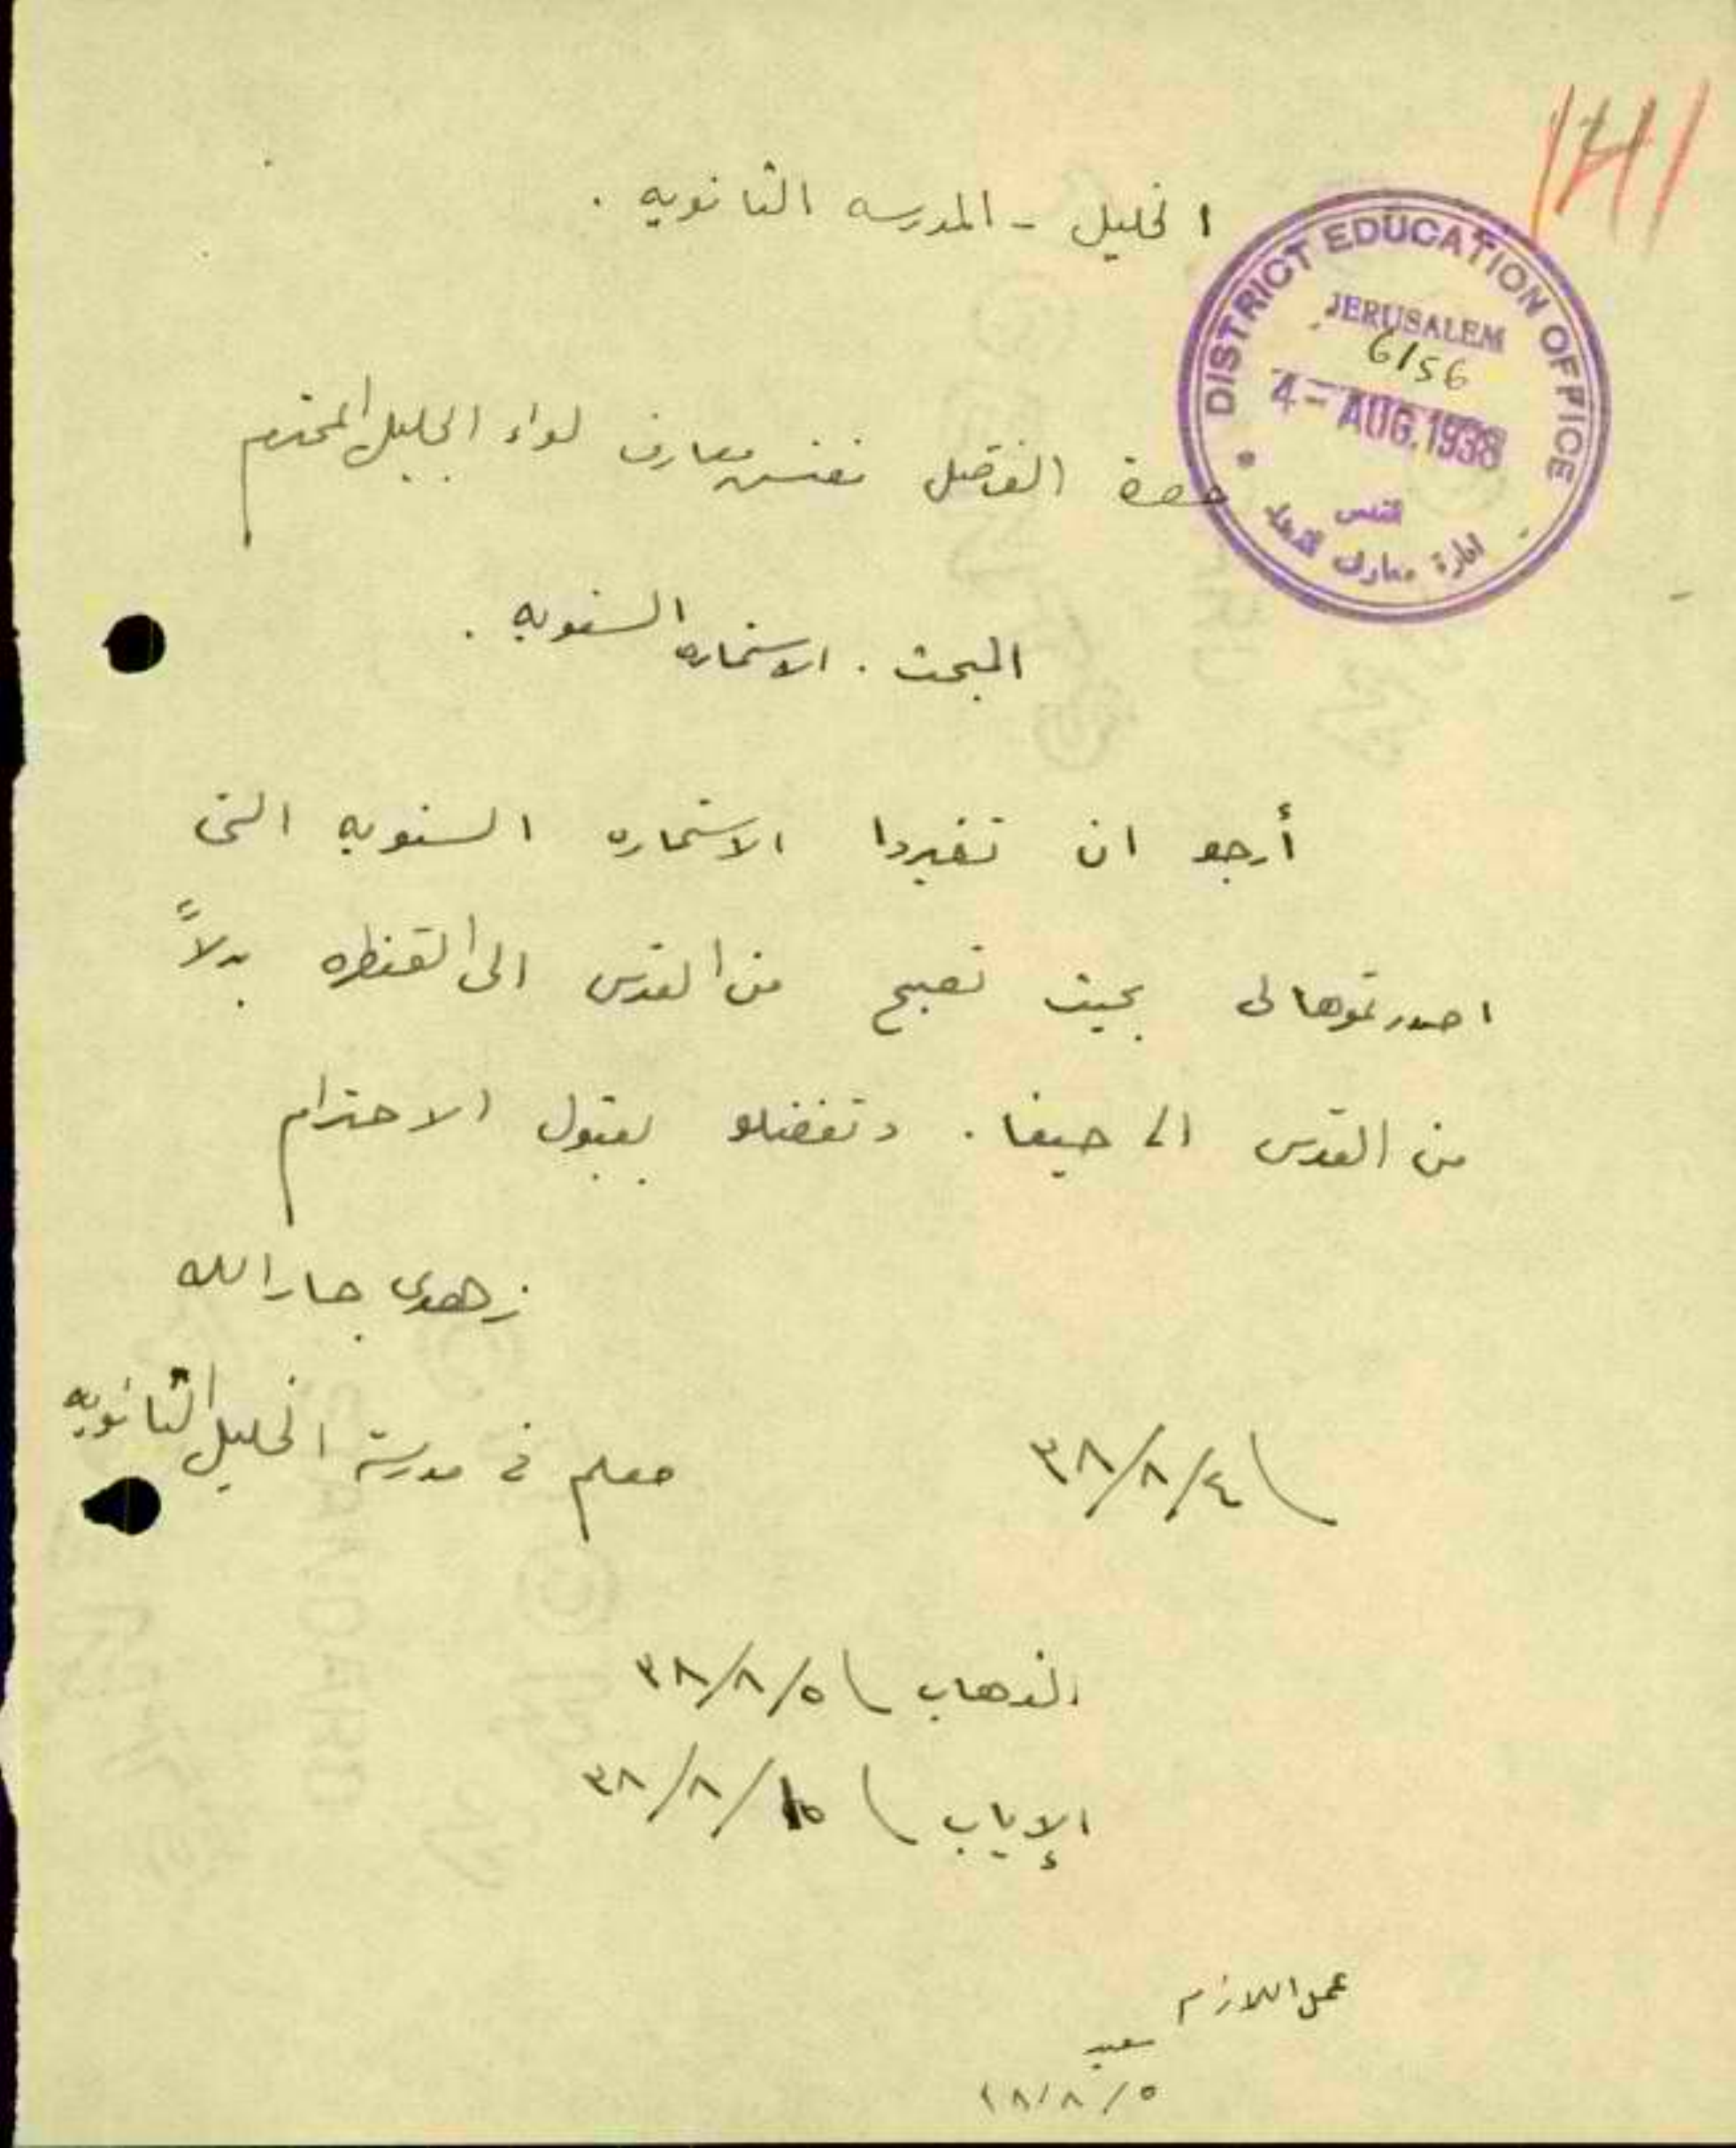 141
الخليل - المدرسه الثانويه .
DISTRICT EDUCATION OFFICE
JERUSALEM
6156
4 - AUG. 1938
القدس
ادارة معارف
حضرة الفاضل مفتش معارف لواء الجليل المحترم
المبحث . الاستماره السنويه .
أرجو ان تغيروا الاستماره السنويه التى
اصدرتموها لى بحيث تصبح من القدس الى القنطره بدلاً
من القدس الى حيفا . وتفضلو بقبول الاحترام
زهدى جار الله
معلم فى مدرسة الخليل الثانويه
٣٨/٨/٤
الذهاب ٣٨/٨/٥
الإياب ٣٨/٨/١٥
عمل اللازم
سعيد
٣٨/٨/٥